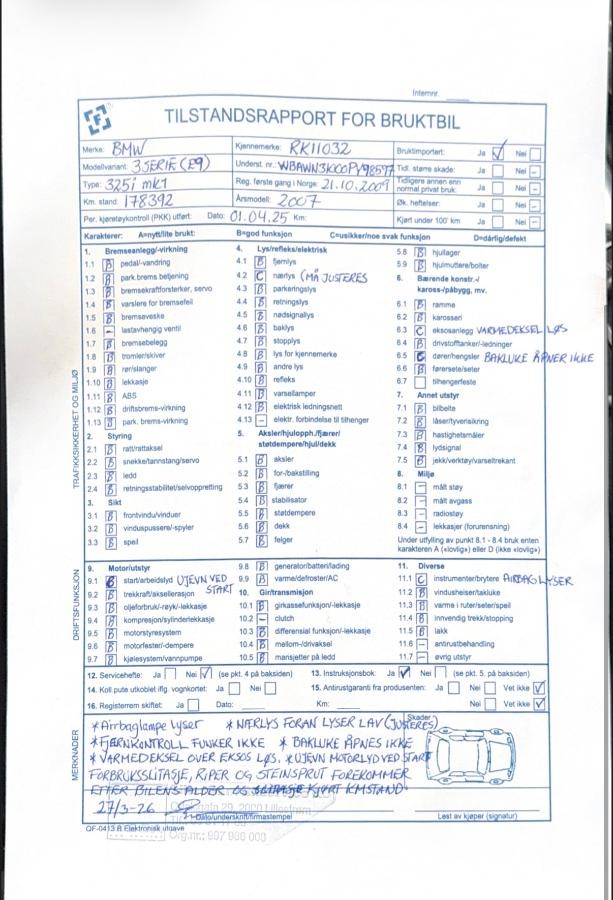 Internnr.
TILSTANDSRAPPORT FOR BRUKTBIL
Merke: BMW
Kjennemerke: RK11032
Bruktimportert: Ja ✓ Nei
Modellvariant: 3 SERIE (E9)
Understellsnr.: WBAWN31000PY98577
Tidl. større skade: Ja Nei –
Type: 325i mk1
Reg. første gang i Norge: 21.10.2009
Tidligere annen enn normal privat bruk: Ja Nei –
Km. stand: 178392
Årsmodell: 2007
Øk. heftelser: Ja Nei –
Per. kjøretøykontroll (PKK) utført: Dato: 01.04.25 Km:
Kjørt under 100' km Ja Nei –
Karakterer: A=nytt/lite brukt: B=god funksjon C=usikker/noe svak funksjon D=dårlig/defekt
TRAFIKKSIKKERHET OG MILJØ
1. Bremseanlegg/-virkning
1.1 B pedal/-vandring
1.2 B park.brems betjening
1.3 B bremsekraftforsterker, servo
1.4 B varslere for bremsefeil
1.5 B bremsevæske
1.6 – lastavhengig ventil
1.7 B bremsebelegg
1.8 B tromler/skiver
1.9 B rør/slanger
1.10 B lekkasje
1.11 B ABS
1.12 B driftsbrems-virkning
1.13 B park. brems-virkning
2. Styring
2.1 B ratt/rattaksel
2.2 B snekke/tannstang/servo
2.3 B ledd
2.4 B retningsstabilitet/selvoppretting
3. Sikt
3.1 B frontvindu/vinduer
3.2 B vinduspussere/-spyler
3.3 B speil
4. Lys/refleks/elektrisk
4.1 B fjernlys
4.2 C nærlys (MÅ JUSTERES
4.3 B parkeringslys
4.4 B retningslys
4.5 B nødsignallys
4.6 B baklys
4.7 B stopplys
4.8 B lys for kjennemerke
4.9 B andre lys
4.10 B refleks
4.11 B varsellamper
4.12 B elektrisk ledningsnett
4.13 – elektr. forbindelse til tilhenger
5. Aksler/hjulopph./fjærer/støtdempere/hjul/dekk
5.1 B aksler
5.2 B for-/bakstilling
5.3 B fjærer
5.4 B stabilisator
5.5 B støtdempere
5.6 B dekk
5.7 B felger
5.8 B hjullager
5.9 B hjulmuttere/bolter
6. Bærende konstr./kaross-/påbygg, mv.
6.1 B ramme
6.2 B karosseri
6.3 C eksosanlegg VARMEDEKSEL LØS
6.4 B drivstofftanker/-ledninger
6.5 C dører/hengsler BAKLUKE ÅPNER IKKE
6.6 B førersete/seter
6.7 tilhengerfeste
7. Annet utstyr
7.1 B bilbelte
7.2 B låser/tyverisikring
7.3 B hastighetsmåler
7.4 B lydsignal
7.5 B jekk/verktøy/varseltrekant
8. Miljø
8.1 – målt støy
8.2 – målt avgass
8.3 – radiostøy
8.4 – lekkasjer (forurensning)
Under utfylling av punkt 8.1 - 8.4 bruk enten karakteren A («lovlig») eller D (ikke «lovlig»)
DRIFTSFUNKSJON
9. Motor/utstyr
9.1 B start/arbeidslyd UJEVN VED START
9.2 B trekkraft/akselerasjon
9.3 B oljeforbruk/-røyk/-lekkasje
9.4 B kompresjon/sylinderlekkasje
9.5 B motorstyresystem
9.6 B motorfester/-dempere
9.7 B kjølesystem/vannpumpe
9.8 B generator/batteri/lading
9.9 B varme/defroster/AC
10. Gir/transmisjon
10.1 B girkassefunksjon/-lekkasje
10.2 – clutch
10.3 B differensial funksjon/-lekkasje
10.4 B mellom-/drivaksel
10.5 B mansjetter på ledd
11. Diverse
11.1 C instrumenter/brytere AIRBAG LYSER
11.2 B vindusheiser/takluke
11.3 B varme i ruter/seter/speil
11.4 B innvendig trekk/stopping
11.5 B lakk
11.6 – antirustbehandling
11.7 – øvrig utstyr
12. Servicehefte: Ja Nei ✓ (se pkt. 4 på baksiden)
13. Instruksjonsbok: Ja ✓ Nei (se pkt. 5. på baksiden)
14. Koll pute utkoblet iflg. vognkortet: Ja Nei
15. Antirustgaranti fra produsenten: Ja Nei Vet ikke ✓
16. Registerrem skiftet: Ja Dato: Km: Nei Vet ikke ✓
MERKNADER
*Airbaglampe lyser *NÆRLYS FORAN LYSER LAV (JUSTERES)
*FJERNKONTROLL FUNKER IKKE *BAKLUKE ÅPNES IKKE
*VARMEDEKSEL OVER EKSOS LØS. *UJEVN MOTORLYD VED START
FORBRUKSSLITASJE, RIPER OG STEINSPRUT FOREKOMMER
ETTER BILENS ALDER OG KJØRT KMSTAND.
Skader
27/3-26
2000 Lillestrøm
Dato/underskrift/firmastempel
Lest av kjøper (signatur)
Org.nr.: 907 906 003
QF-0413 B Elektronisk utgave